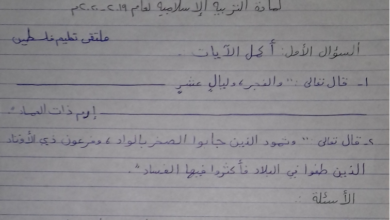 لمادة التربية الإسلامية لعام ٢٠١٩-٢٠٢٠م
ملتقى تعليم فلسطين
السؤال الأول: أكمل الآيات.
١- قال تعالى: "والفجر، وليالٍ عشرٍ
إرم ذات العماد"
٢- قال تعالى: "وثمود الذين جابوا الصخر بالواد، وفرعون ذي الأوتاد
الذين طغوا في البلاد فأكثروا فيها الفساد"
الأسئلة: